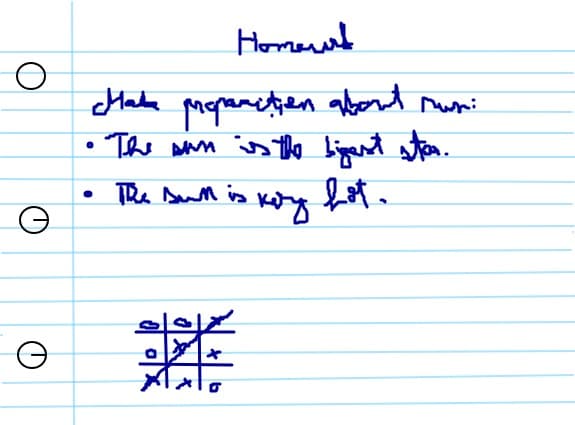 Homework
Make preparation about sun:
• The sun is the bigest star.
• The sun is very hot.
O O X
O X X
X X O